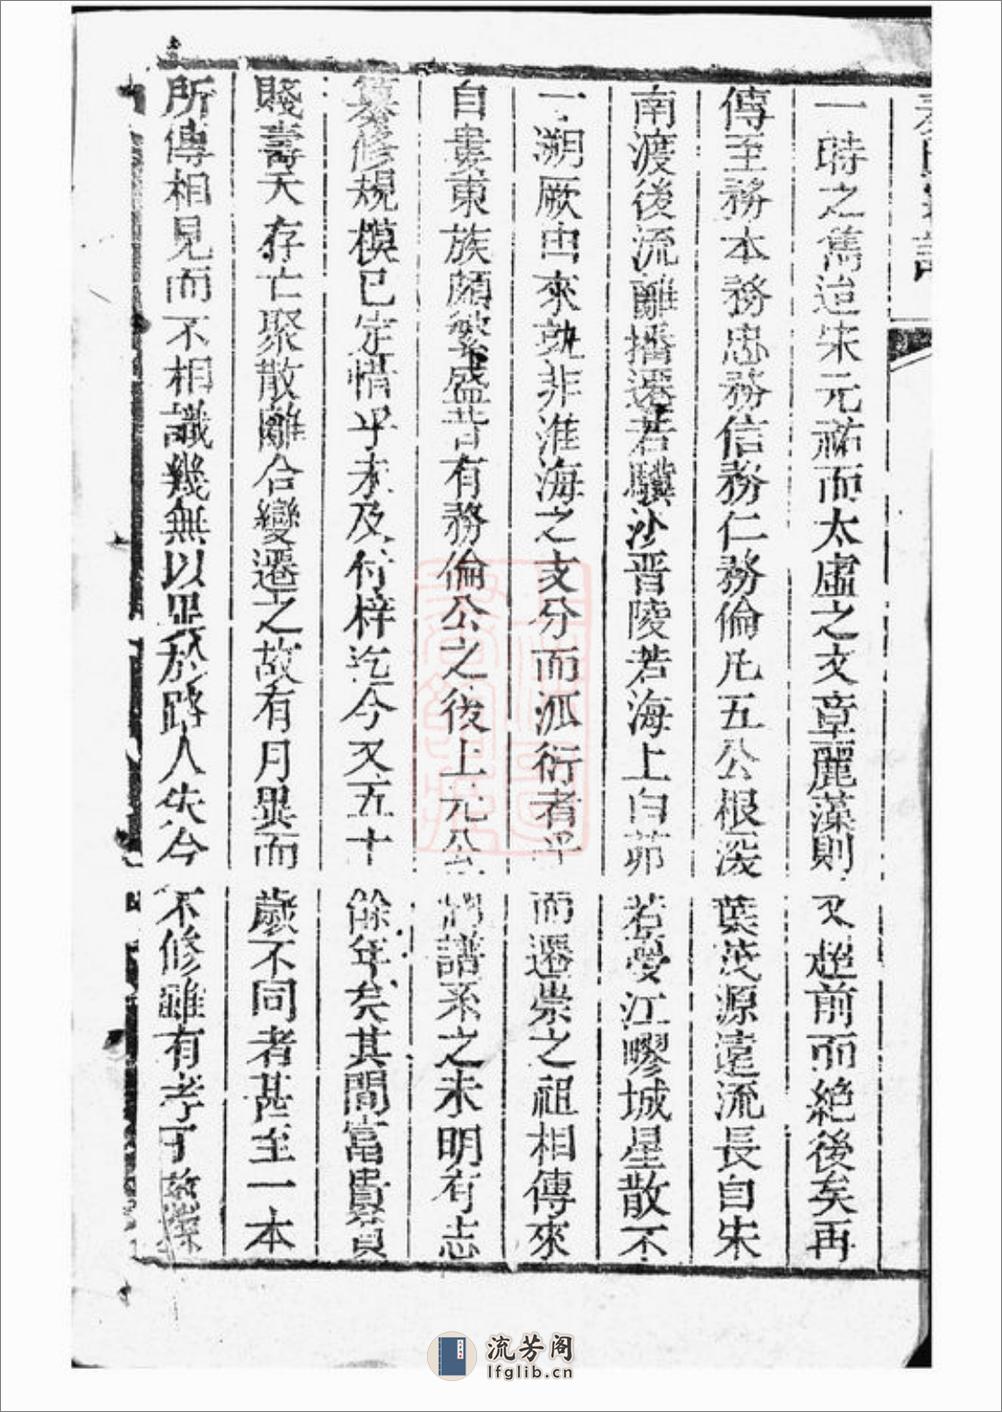 一時之雋迨宋元祐而太虛之文章麗藻則又超前而絶後矣再
傳至務本務忠務信務仁務倫凡五公根深葉茂源遠流長自宋
南渡後流離播遷若驥沙晋陵若海上白茆若婁江疁城星散不
一溯厥由來孰非淮海之支分而派衍者乎而遷崇之祖相傳來
自婁東族頗繁盛昔有務倫公之後上元公潤譜系之未明有志
纂修規模已定惜乎未及付梓迄今又五十餘年矣其間富貴貧
賤壽夭存亡聚散離合變遷之故有月異而歲不同者甚至一本
所傳相見而不相識幾無以異於路人失今不修雖有孝子慈孫
流芳阁
lfglib.cn